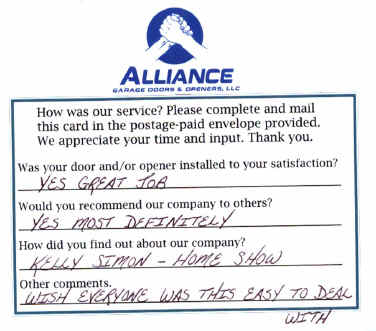 ALLIANCE
GARAGE DOORS & OPENERS, LLC
How was our service? Please complete and mail
this card in the postage-paid envelope provided.
We appreciate your time and input. Thank you.
Was your door and/or opener installed to your satisfaction?
YES GREAT JOB
Would you recommend our company to others?
YES MOST DEFINITELY
How did you find out about our company?
KELLY SIMON - HOME SHOW
Other comments.
WISH EVERYONE WAS THIS EASY TO DEAL
WITH